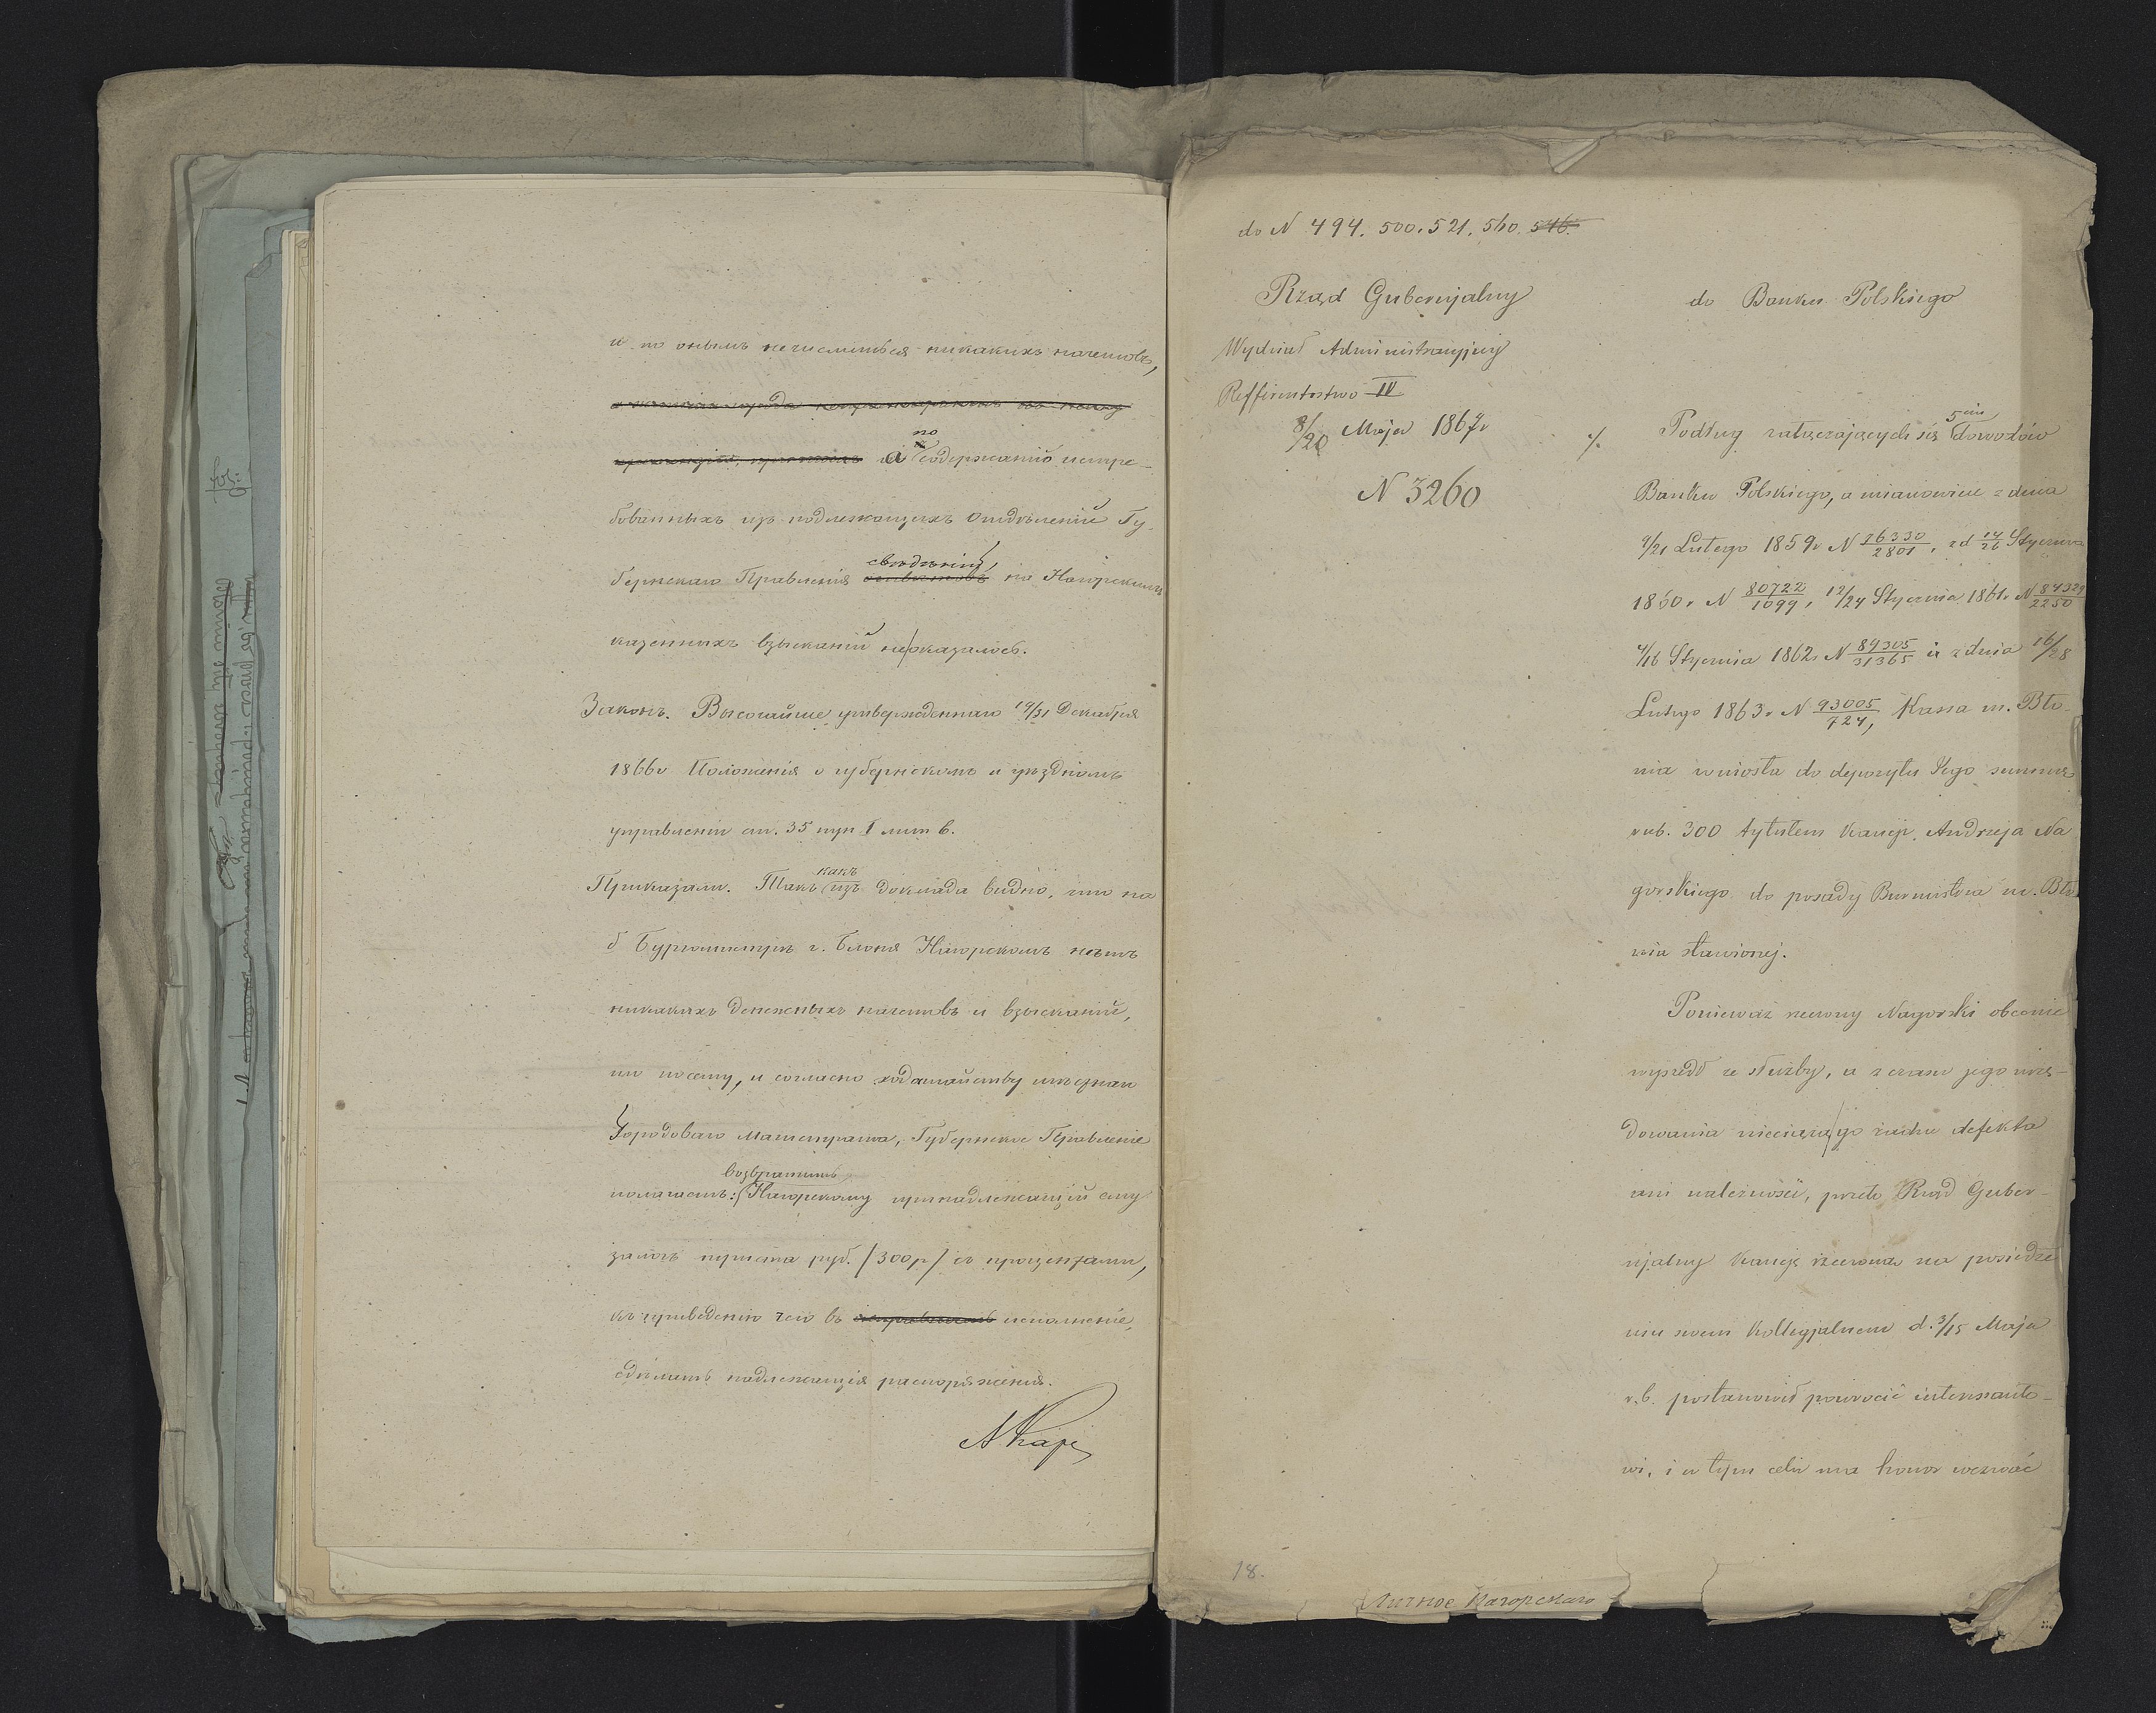 и по онымъ не числиться никакихъ начетовъ,
а по содержанію истре-
бованныхъ изъ подлежащихъ Отдѣленій Гу-
бернскаго Правленія свѣдѣній, на Нагорскомъ
казенныхъ взысканій не оказалось.
Законъ. Высочайше утвержденнаго 19/31 Декабря
1866 г Положенія о губернскомъ и уѣздномъ
управленіи ст. 35 пун I лит в.
Приказали. Такъ какъ изъ доклада видно, что на
б Бургомистрѣ г. Блоня Нагорскомъ нѣтъ
никакихъ денежныхъ начетовъ и взысканій,
то посему, и согласно ходатайству
Городоваго Магистрата, Губернское Правленіе
полагаетъ: возвратить Нагорскому принадлежащій ему
залогъ триста руб. /300 р/ съ процентами,
къ приведенію чего въ исполненіе,
сдѣлать надлежащія распоряженія.
do N 494. 500. 521. 540. 546.
Rząd Gubernjalny
Wydział Administracyjny
Refferentostwo IV
8/20 Maja 1867 r
N 3260
do Banku Polskiego
Podług załączających się 5ciu dowodów
Banku Polskiego, a mianowicie z dnia
9/21 Lutego 1859 r N 76330/2801, zd 14/26 Stycznia
1860 r N 80722/1099, 12/24 Stycznia 1861 r N 84329/2250
4/16 Stycznia 1862 r N 89305/31365 i z dnia 16/28
Lutego 1863 r N 93005/724, Kassa m. Bło-
nia wniosła do depozytu tego summę
rub. 300 tytułem kaucji Andrzeja Na
gorskiego do posady Burmistrza m. Bło
nia stawionej.
Ponieważ rzeczony Nagorski obecnie
wyszedł ze służby, a z czasu jego urzę-
dowania nieciążą go żadne defekta
ani należności, przeto Rząd Guber-
njalny kaucję rzeczoną na posiedze
niu swem Kollegjalnem d. 3/15 Maja
r.b. postanowił powrócić interessanto-
wi, i w tym celu ma honor wezwać
18.
Личное Нагорскаго